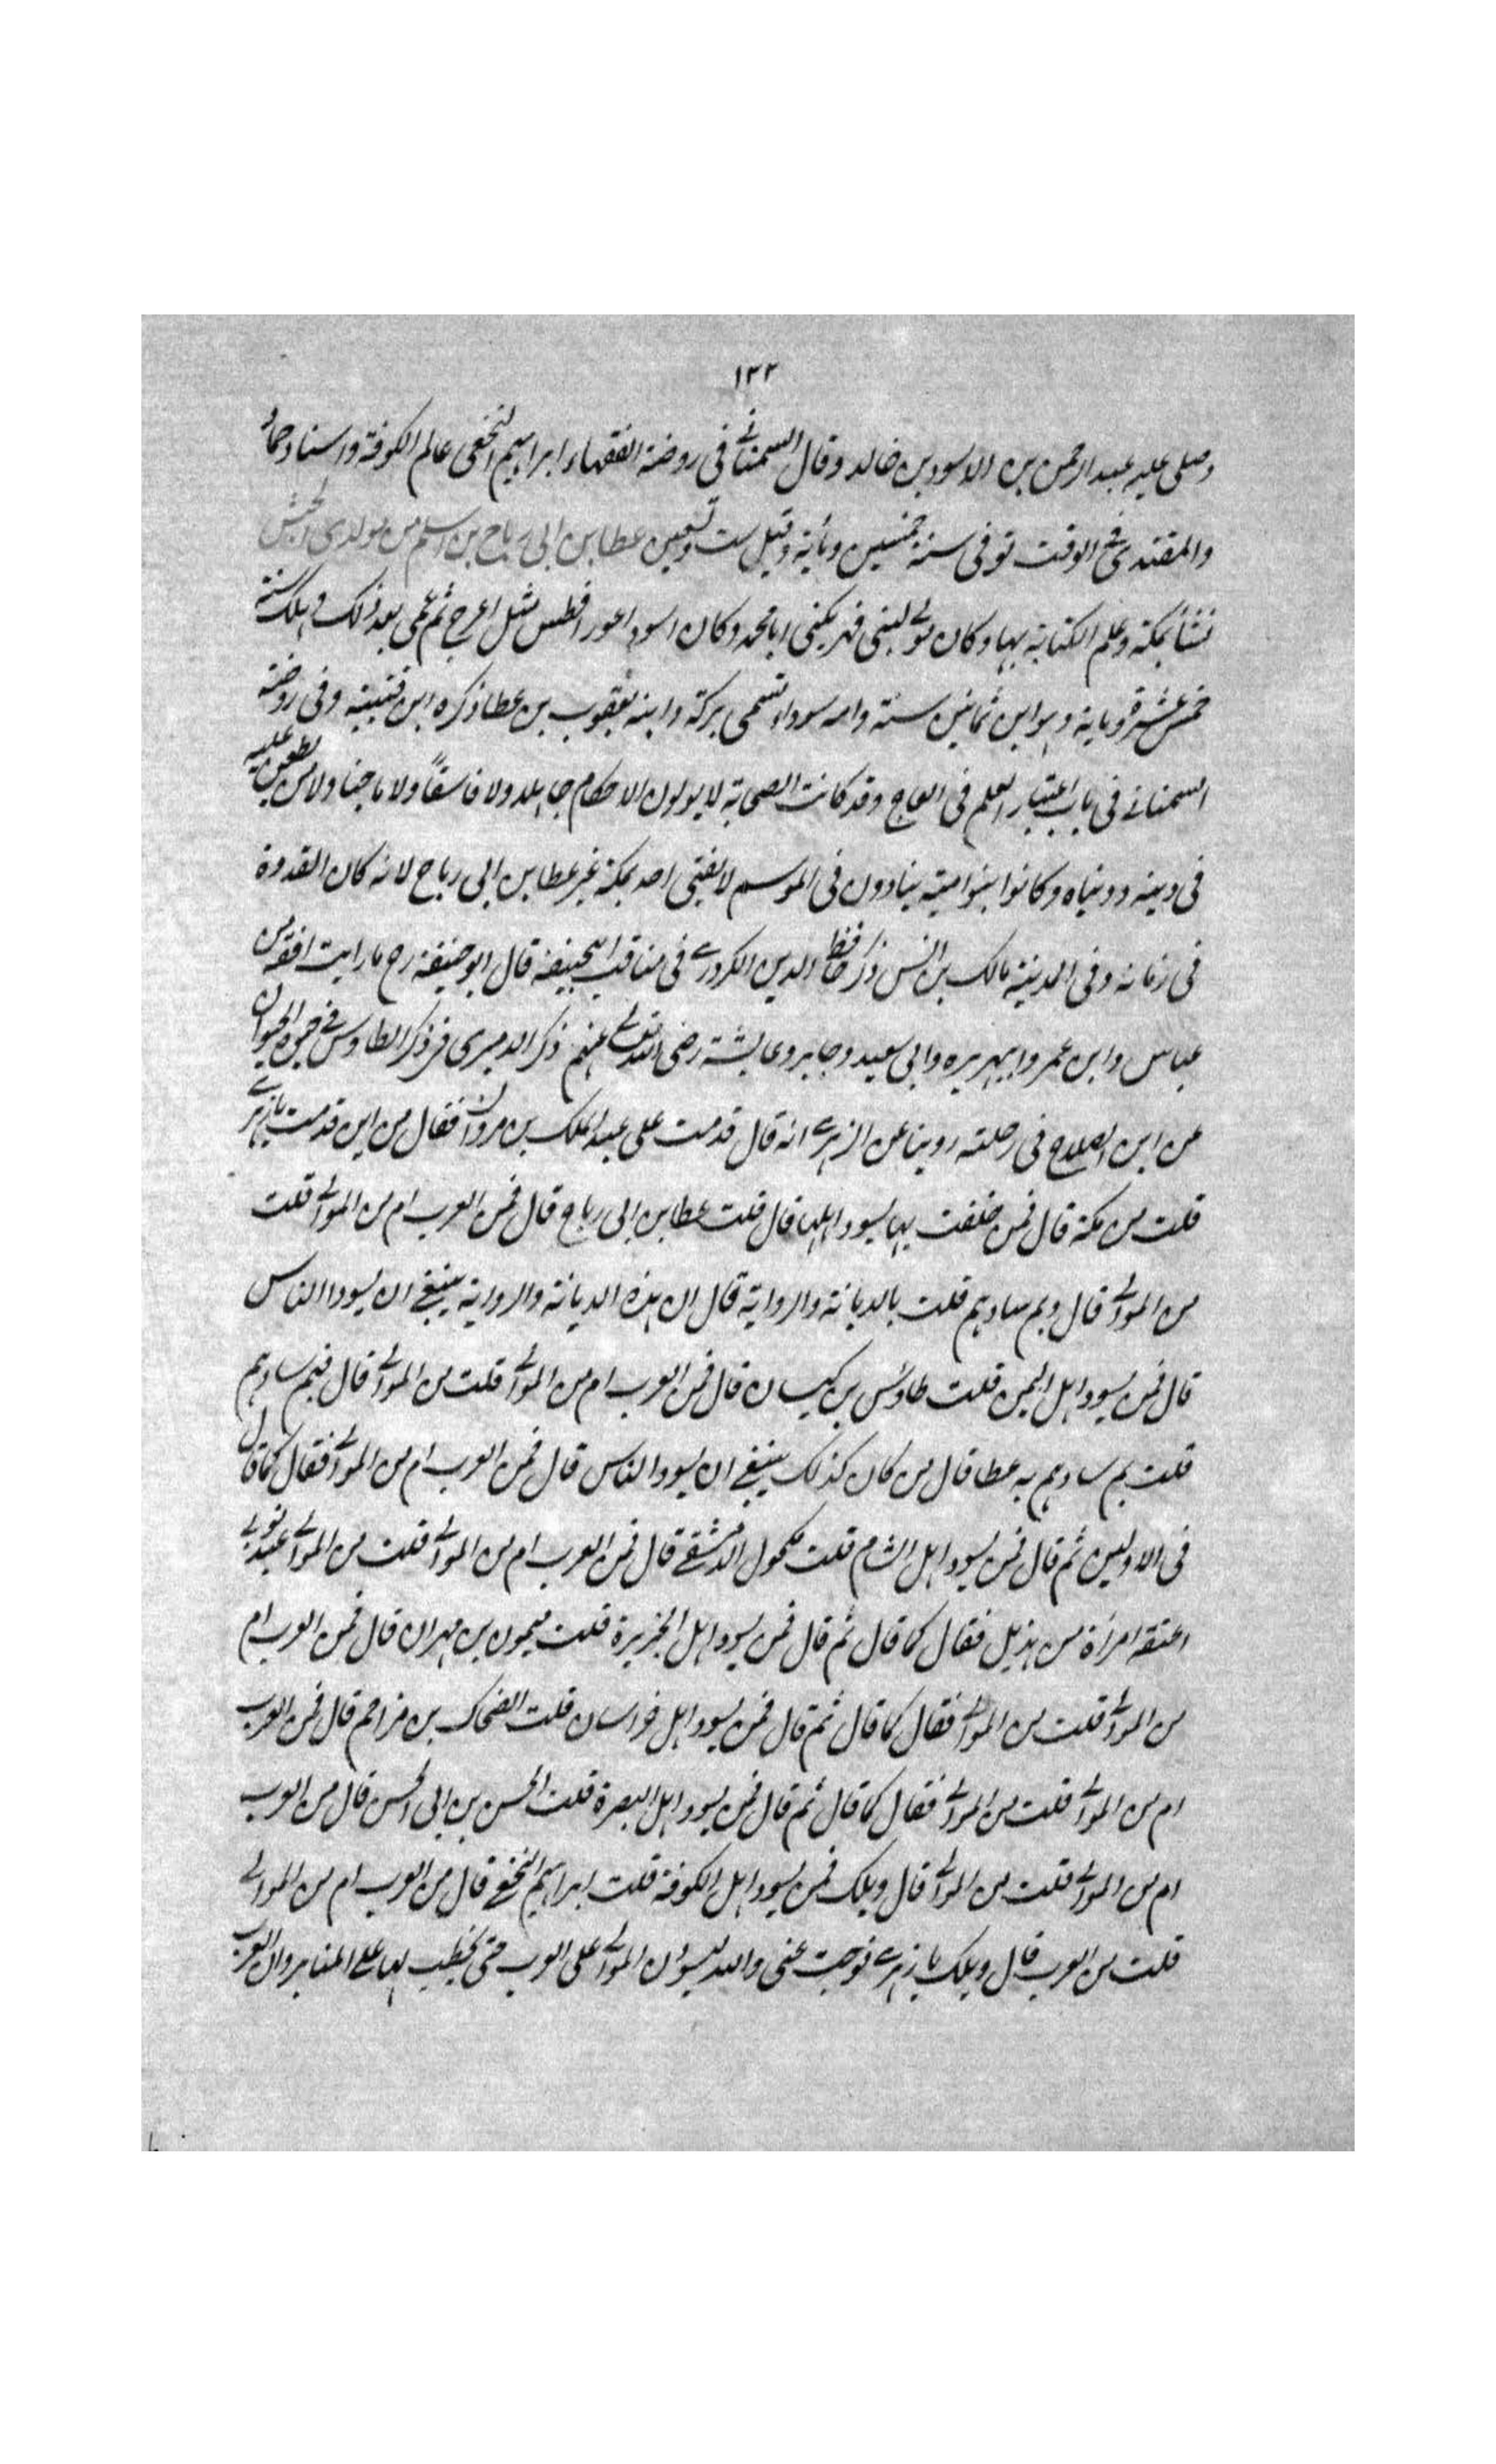 ١٣٢
وصلى عليه عبد الرحمن بن الاسود بن خالد وقال السمناني في روضة الفقهاء ابراهيم النخعي عالم الكوفة واستاد حماد
والمقتدى في الوقت توفى سنة خمسين ومأية وقيل ست وتسعين عطا بن ابي رباح بن اسلم من مولدى الجيش
نشأ بمكة وعلم الكتابة بها وكان مولى لبنى فهر يكنى ابا محمد وكان اسود اعور افطس اشل اعرج ثم عمى بعد ذلك وهلك سنة
خمس عشرة ومأية وهو ابن ثمانين سنة وامه سوداء تسمى بركة وابنه يعقوب بن عطا ذكره ابن قتيبة وفى روضة
السمناني في باب اعتبار العلم فى وقد كانت الصحابة لا يولون الاحكام جاهلا ولا فاسقاً ولا ماجنا ولا من يطعن عليه
فى دينه ودنياه وكانوا بنوا امية ينادون فى الموسم لا يفتى احد بمكة غير عطا بن ابى رباح لانه كان القدوة
فى زمانه وفى المدينة مالك بن انس ذكر حافظ الدين الكردرى فى مناقب ابيحنيفة قال ابو حنيفة رح ما رايت افقه من
عباس وابن عمر وابيهريره وابى سعيد وجابر وعايشة رضى الله تعالى عنهم ذكر الدميرى فى ذكر الطاوس فى حيوة الحيوان
عن ابن الصلاح فى رحلته روينا عن الزهرى انه قال قدمت على عبد الملك بن مروان فقال من اين قدمت يا زهرى
قلت من مكة قال فمن خلفت بها يسود اهلها قال قلت عطا بن ابى رباح قال فمن العرب ام من الموالى قلت
من الموالى قال وبم سادهم قلت بالديانة والرواية قال ان هذه الديانة والرواية ينبغى ان يسودا الناس
قال فمن يسود اهل اليمن قلت طاوس بن كيسان قال فمن العرب ام من الموالى قلت من الموالى قال فبم سادهم
قلت بم سادهم به عطا قال من كان كذلك ينبغى ان يسودا الناس قال فمن العرب ام من الموالى فقال كما قال
فى الاولين ثم قال فمن يسود اهل الشام قلت مكحول الدمشقى قال فمن العرب ام من الموالى قلت من الموالى عبد نوبى
اعتقه امرأة من هذيل فقال كما قال ثم قال فمن يسود اهل الجزيرة قلت ميمون بن مهران قال فمن العرب ام
من الموالى قلت من الموالى فقال كما قال ثم قال فمن يسود اهل خراسان قلت الضحاك بن مزاحم قال فمن العرب
ام من الموالى قلت من الموالى فقال كما قال ثم قال فمن يسود اهل البصرة قلت الحسن بن ابى الحسن قال من العرب
ام من الموالى قلت من الموالى قال ويلك فمن يسود اهل الكوفة قلت ابراهيم النخعى قال من العرب ام من الموالى
قلت من العرب قال ويلك يا زهرى فرجت عنى والله ليسودن الموالى على العرب حتى يخطب لها على المنابر وان العرب